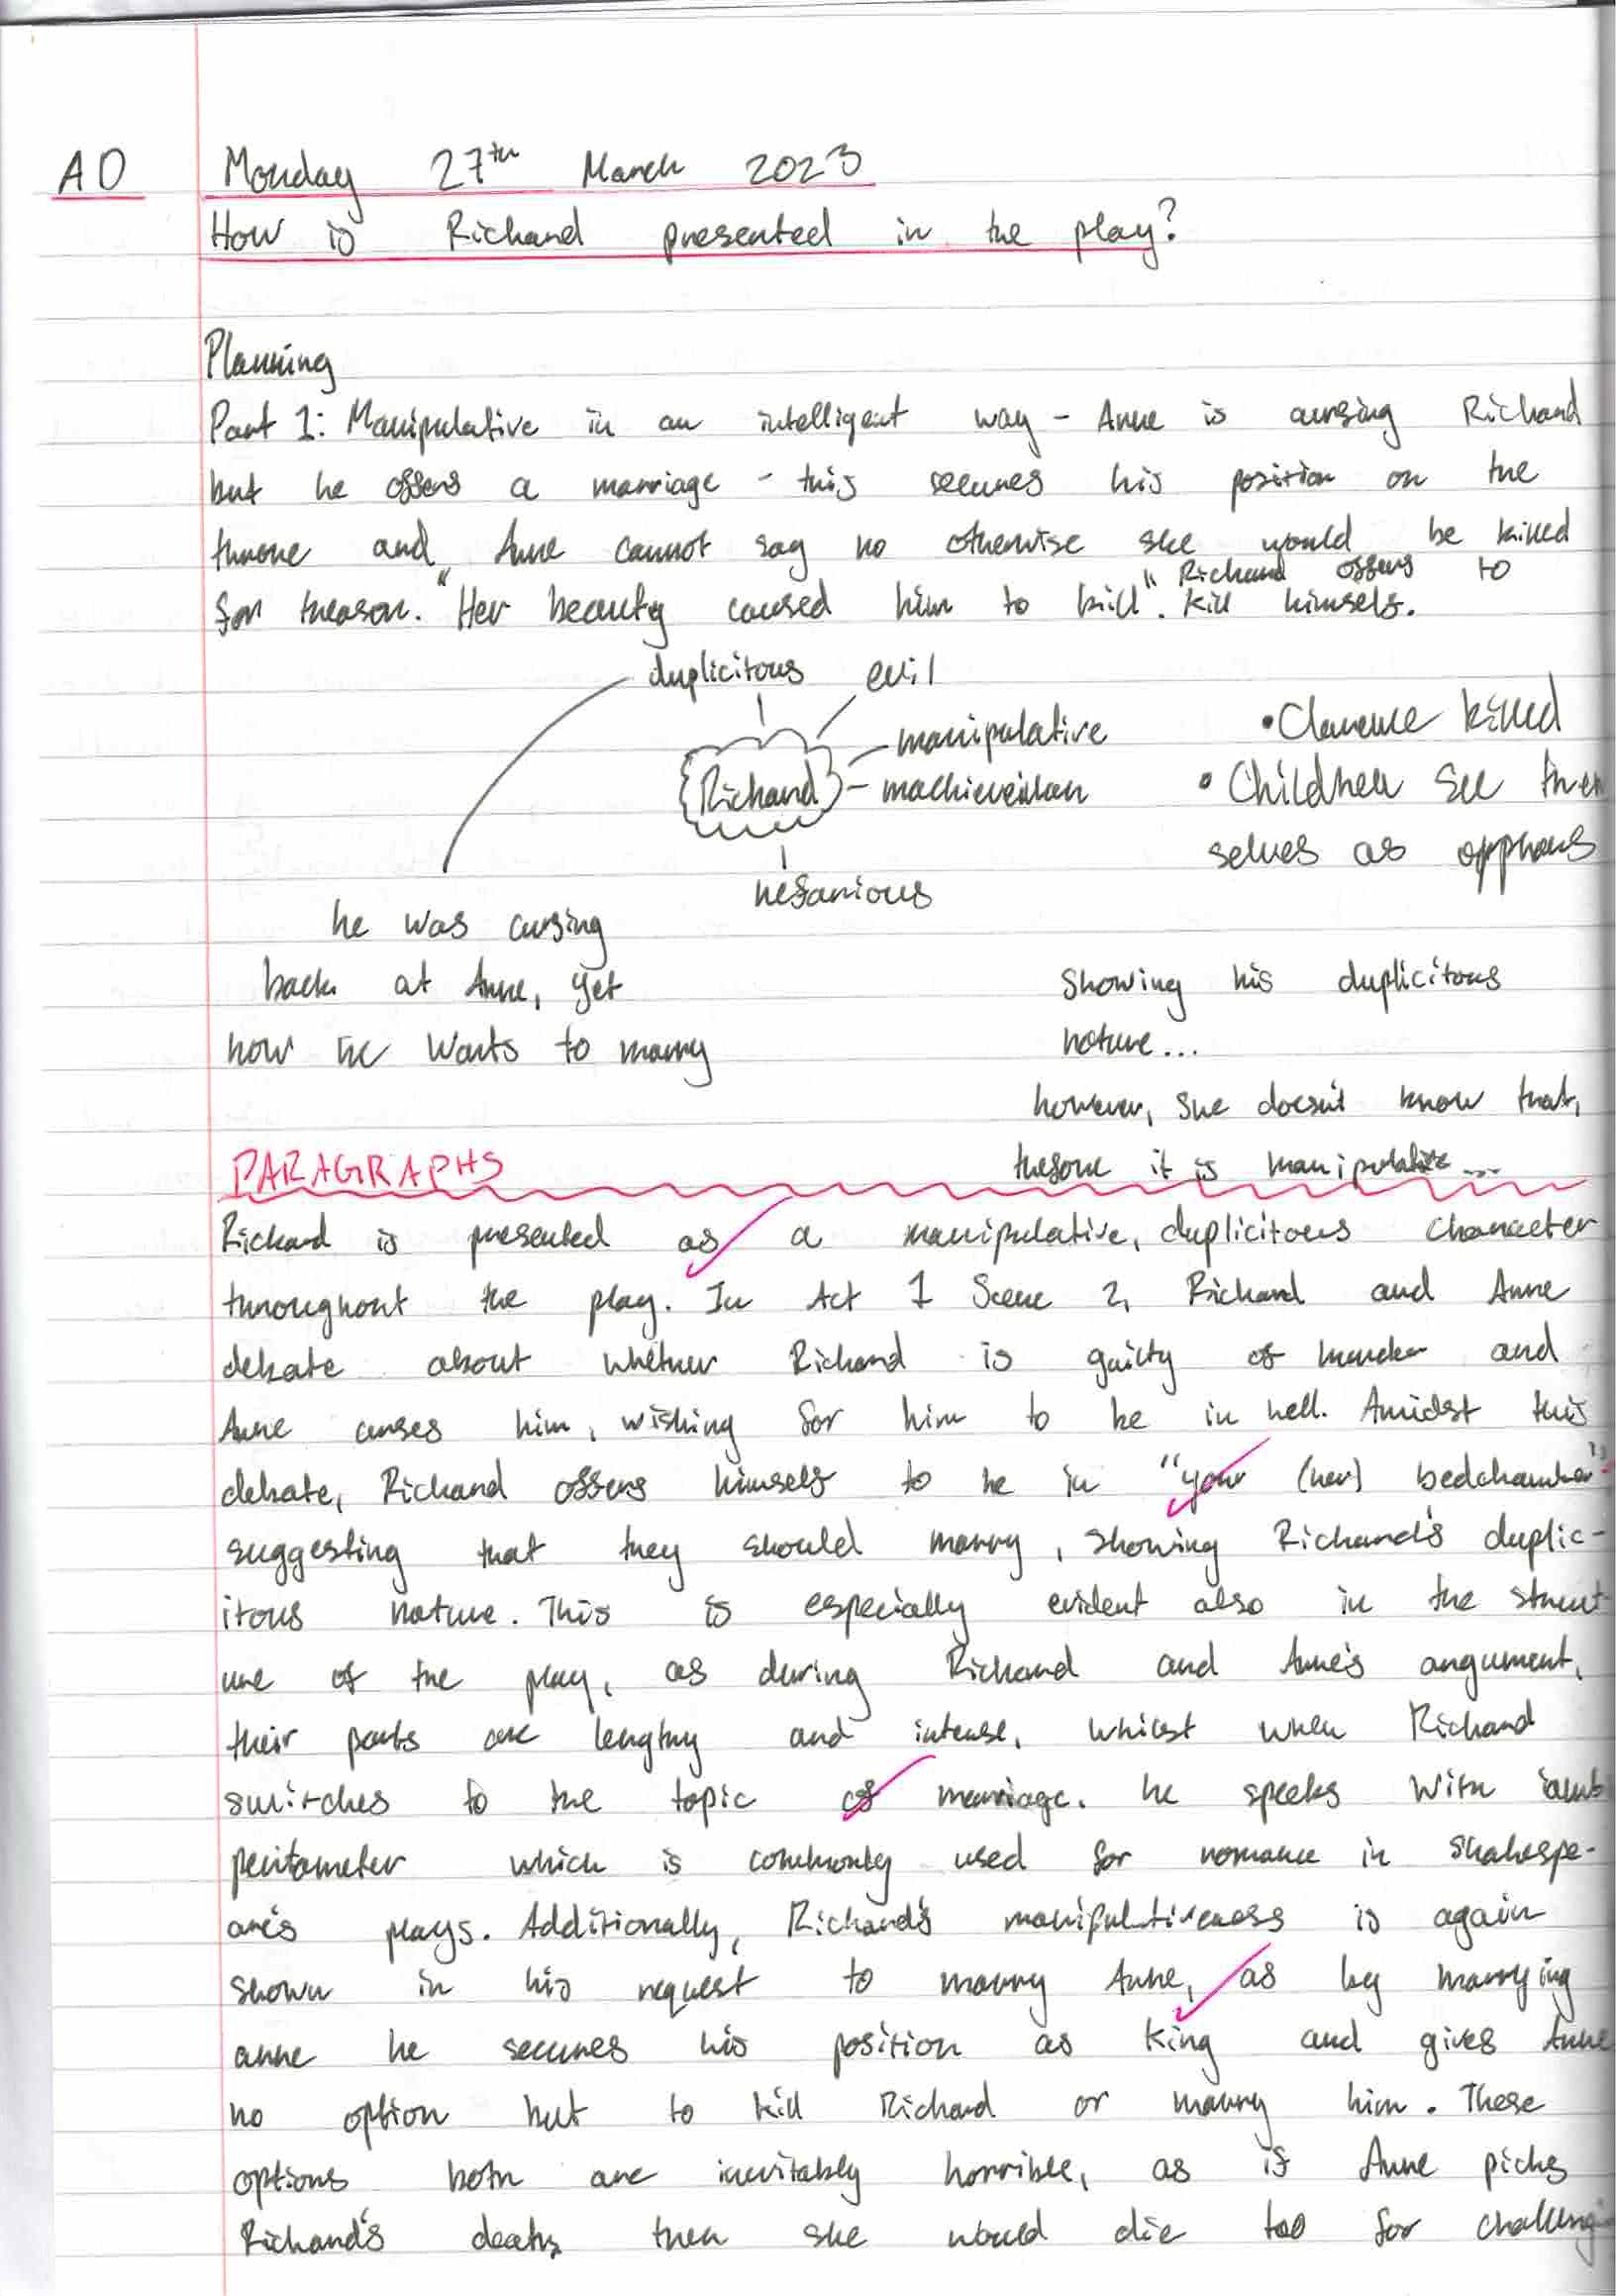 AO Monday 27th March 2023
How is Richard presented in the play?
Planning
Part 1: Manipulative in an intelligent way - Anne is cursing Richard
but he offers a marriage - this secures his position on the
throne and Anne cannot say no otherwise she would be killed
for treason. "Her beauty caused him to kill". Richard offers to
kill himself.
duplicitous evil
manipulative
Richard
machievelan
nefarious
• Clarence killed
• Children see them
selves as opphans
he was cursing
back at Anne, yet
now he wants to marry
Showing his duplicitous
nature...
however, she doesn't know that,
thefore it is manipulative...
PARAGRAPHS
Richard is presented as a manipulative, duplicitous character
throughout the play. In Act 1 Scene 2, Richard and Anne
debate about whether Richard is guilty of murder and
Anne curses him, wishing for him to be in hell. Amidst this
debate, Richard offers himself to be in "your (her) bedchamber"
suggesting that they should marry, showing Richard's duplic-
itous nature. This is especially evident also in the struct
ure of the play, as during Richard and Anne's argument,
their parts are lengthy and intense, whilst when Richard
switches to the topic of marriage. he speeks with iamb
pentameter which is commonly used for romance in Shakespe-
are's plays. Additionally, Richard's manipultiveness is again
shown in his request to marry Anne, as by marrying
anne he secures his position as king and gives Anne
no option but to kill Richard or marry him. These
options both are inevitably horrible, as if Anne picks
Richard's death, then she would die too for challengi